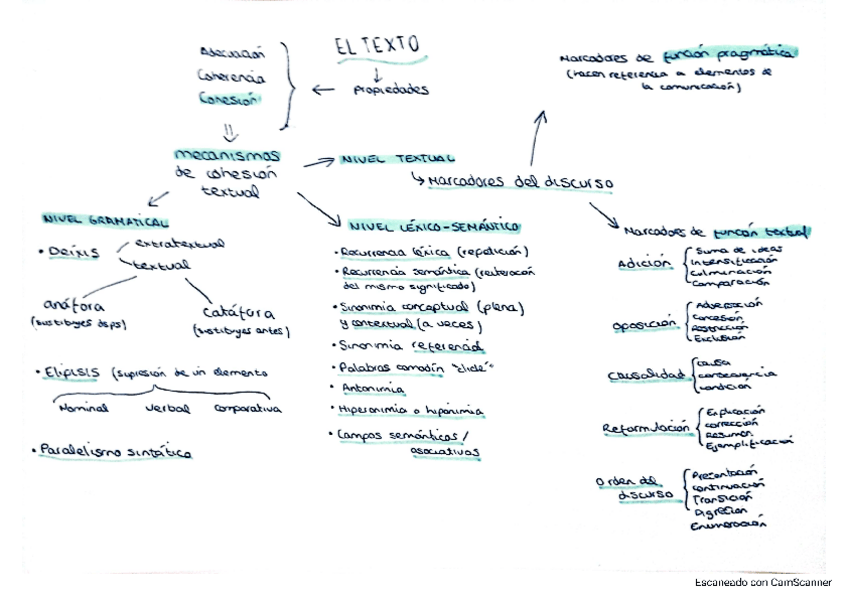 EL TEXTO
propiedades
Adecuación
Coherencia
Cohesión
mecanismos
de cohesión
textual
NIVEL TEXTUAL
Marcadores del discurso
Marcadores de función pragmática
(hacen referencia a elementos de
la comunicación)
NIVEL GRAMATICAL
• Deíxis
extratextual
textual
anáfora
(sustituyes dsps)
Catáfora
(sustituyes antes)
• Elipisis (supresión de un elemento
Nominal verbal comparativa
• Paralelismo sintático
NIVEL LÉXICO-SEMÁNTICO
• Recurrencia léxica (repetición)
• Recurrencia semántica (reiteración
del mismo significado)
• Sinonimia conceptual (plena)
y contextual (a veces)
• Sinonimia referencial
• Palabras comodín "clide"
• Antonimia
• Hiperonimia o hiponimia
• Campos semánticos /
asociativos
Marcadores de función textual
Adición
Suma de ideas
Intensificación
Culminación
Comparación
oposición
Adversación
Concesión
Restricción
Exclusión
Causalidad
causa
consecuencia
condición
Reformulación
Explicación
corrección
Resumen
Ejemplificación
Orden del
discurso
Presentación
continuación
Transición
Digresion
Enumeración
Escaneado con CamScanner